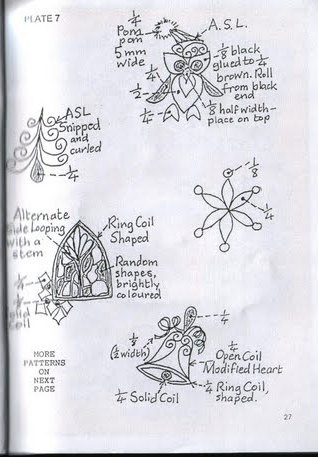 PLATE 7
1/4
Pom
pom
5mm
wide
A.S.L.
1/8 black
glued to 1/4
brown. Roll
from black
end
1/4
1/2
1/4
1/8 half width-
place on top
ASL
Snipped
and
curled
1/4
1/8
1/4
Alternate
Side Looping
with a
stem
Ring Coil
Shaped
Random
shapes,
brightly
coloured
Coil
1/4
(1/2 width)
1/4
Open Coil
Modified Heart
1/4 Ring Coil,
shaped.
1/4 Solid Coil
MORE
PATTERNS
ON
NEXT
PAGE
27